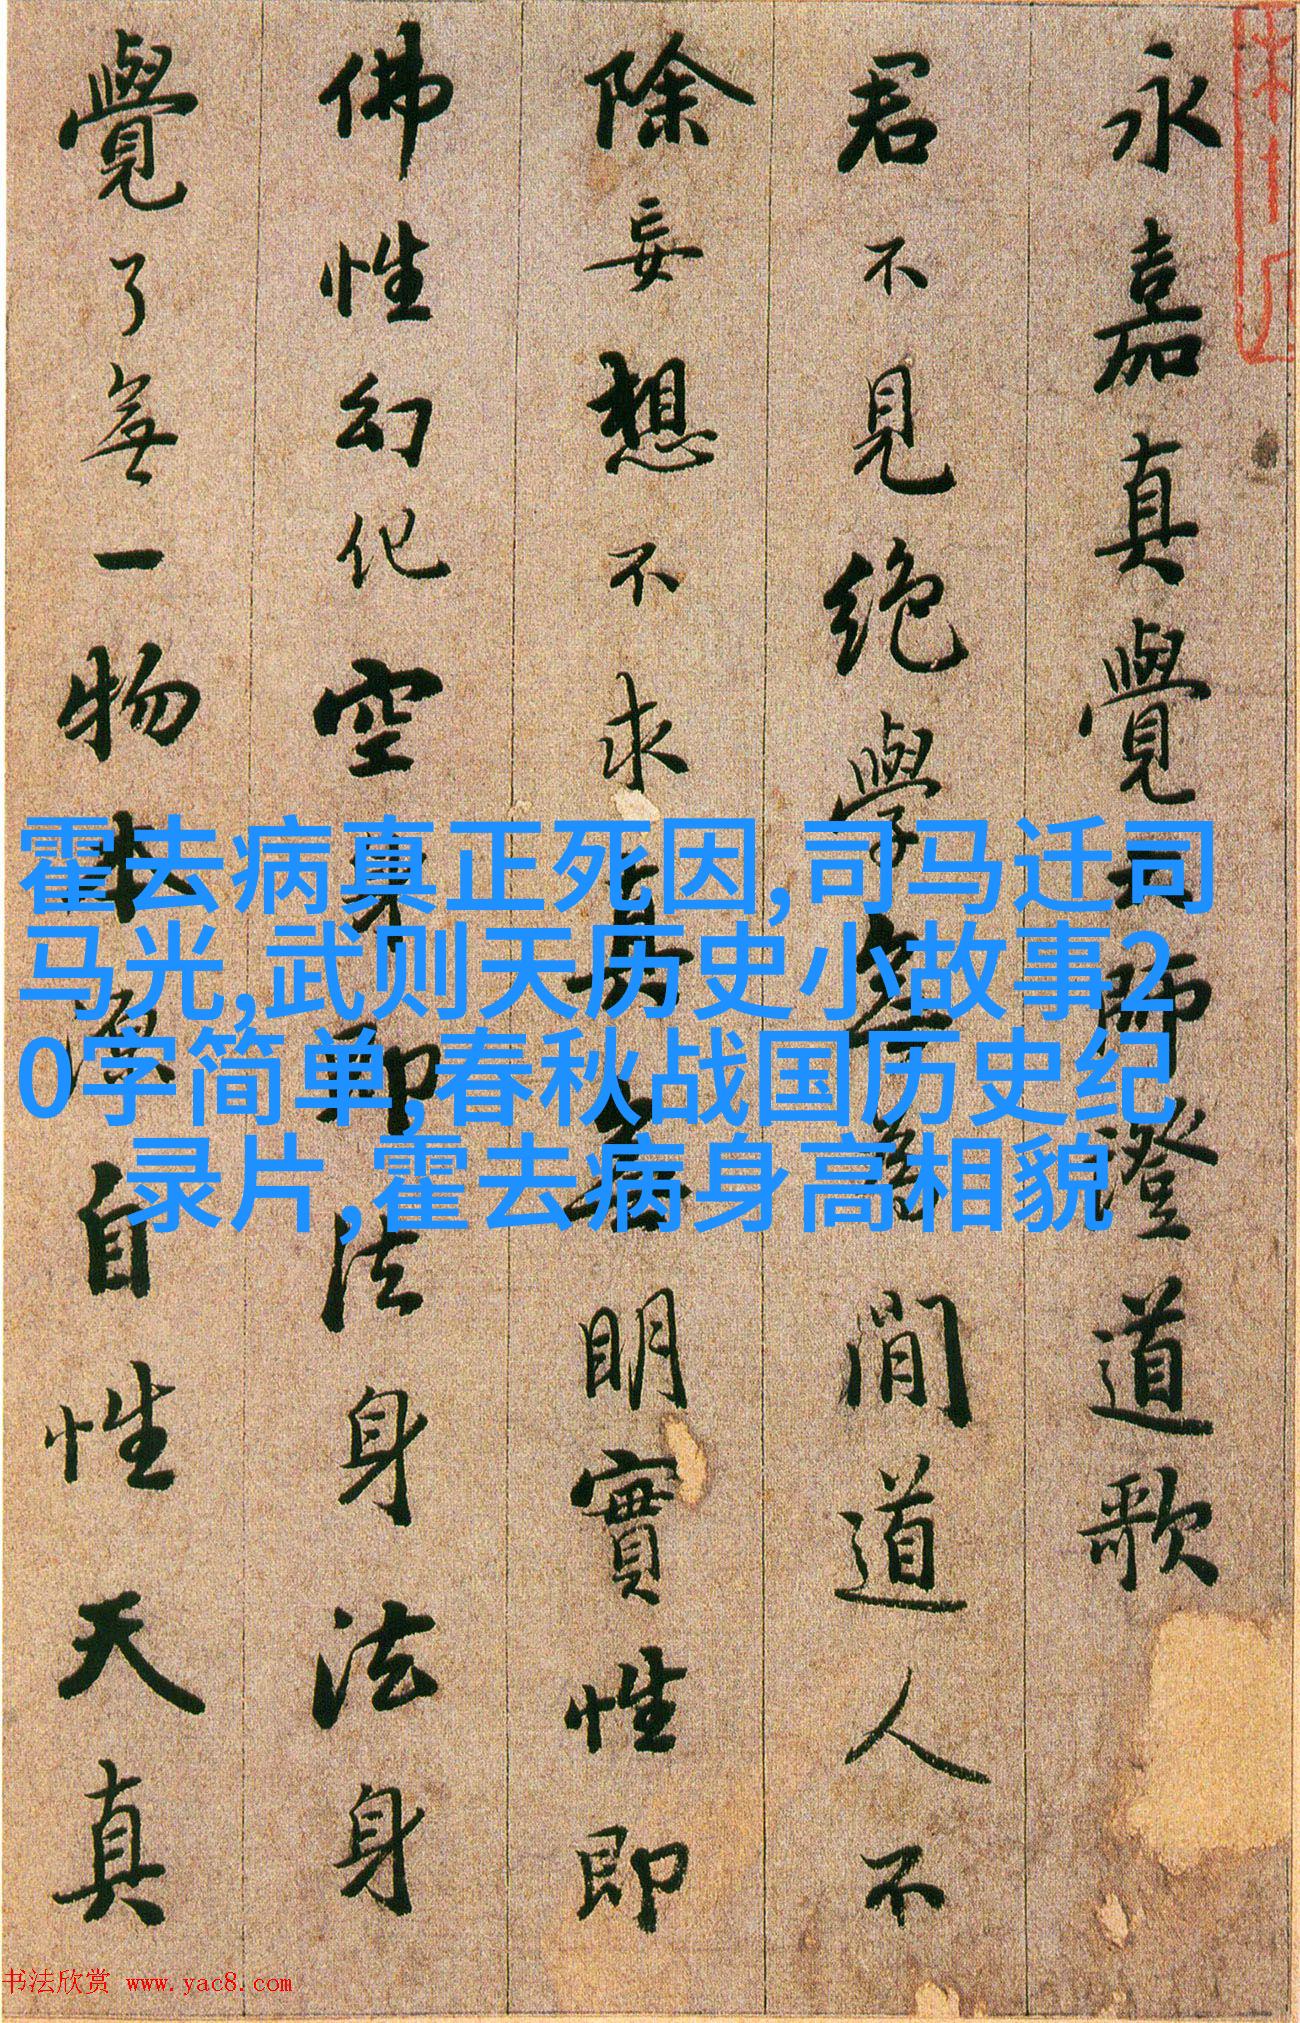 永嘉真覺大師澄道歌
君不見絶學無為閒道人不
除妄想不求真無明實性即
佛性幻化空身即法身法身
覺了無一物本源自性天真
霍去病真正死因,司马迁司
马光,武则天历史小故事2
0字简单,春秋战国历史纪
录片,霍去病身高相貌
书法欣赏 www.yac8.com